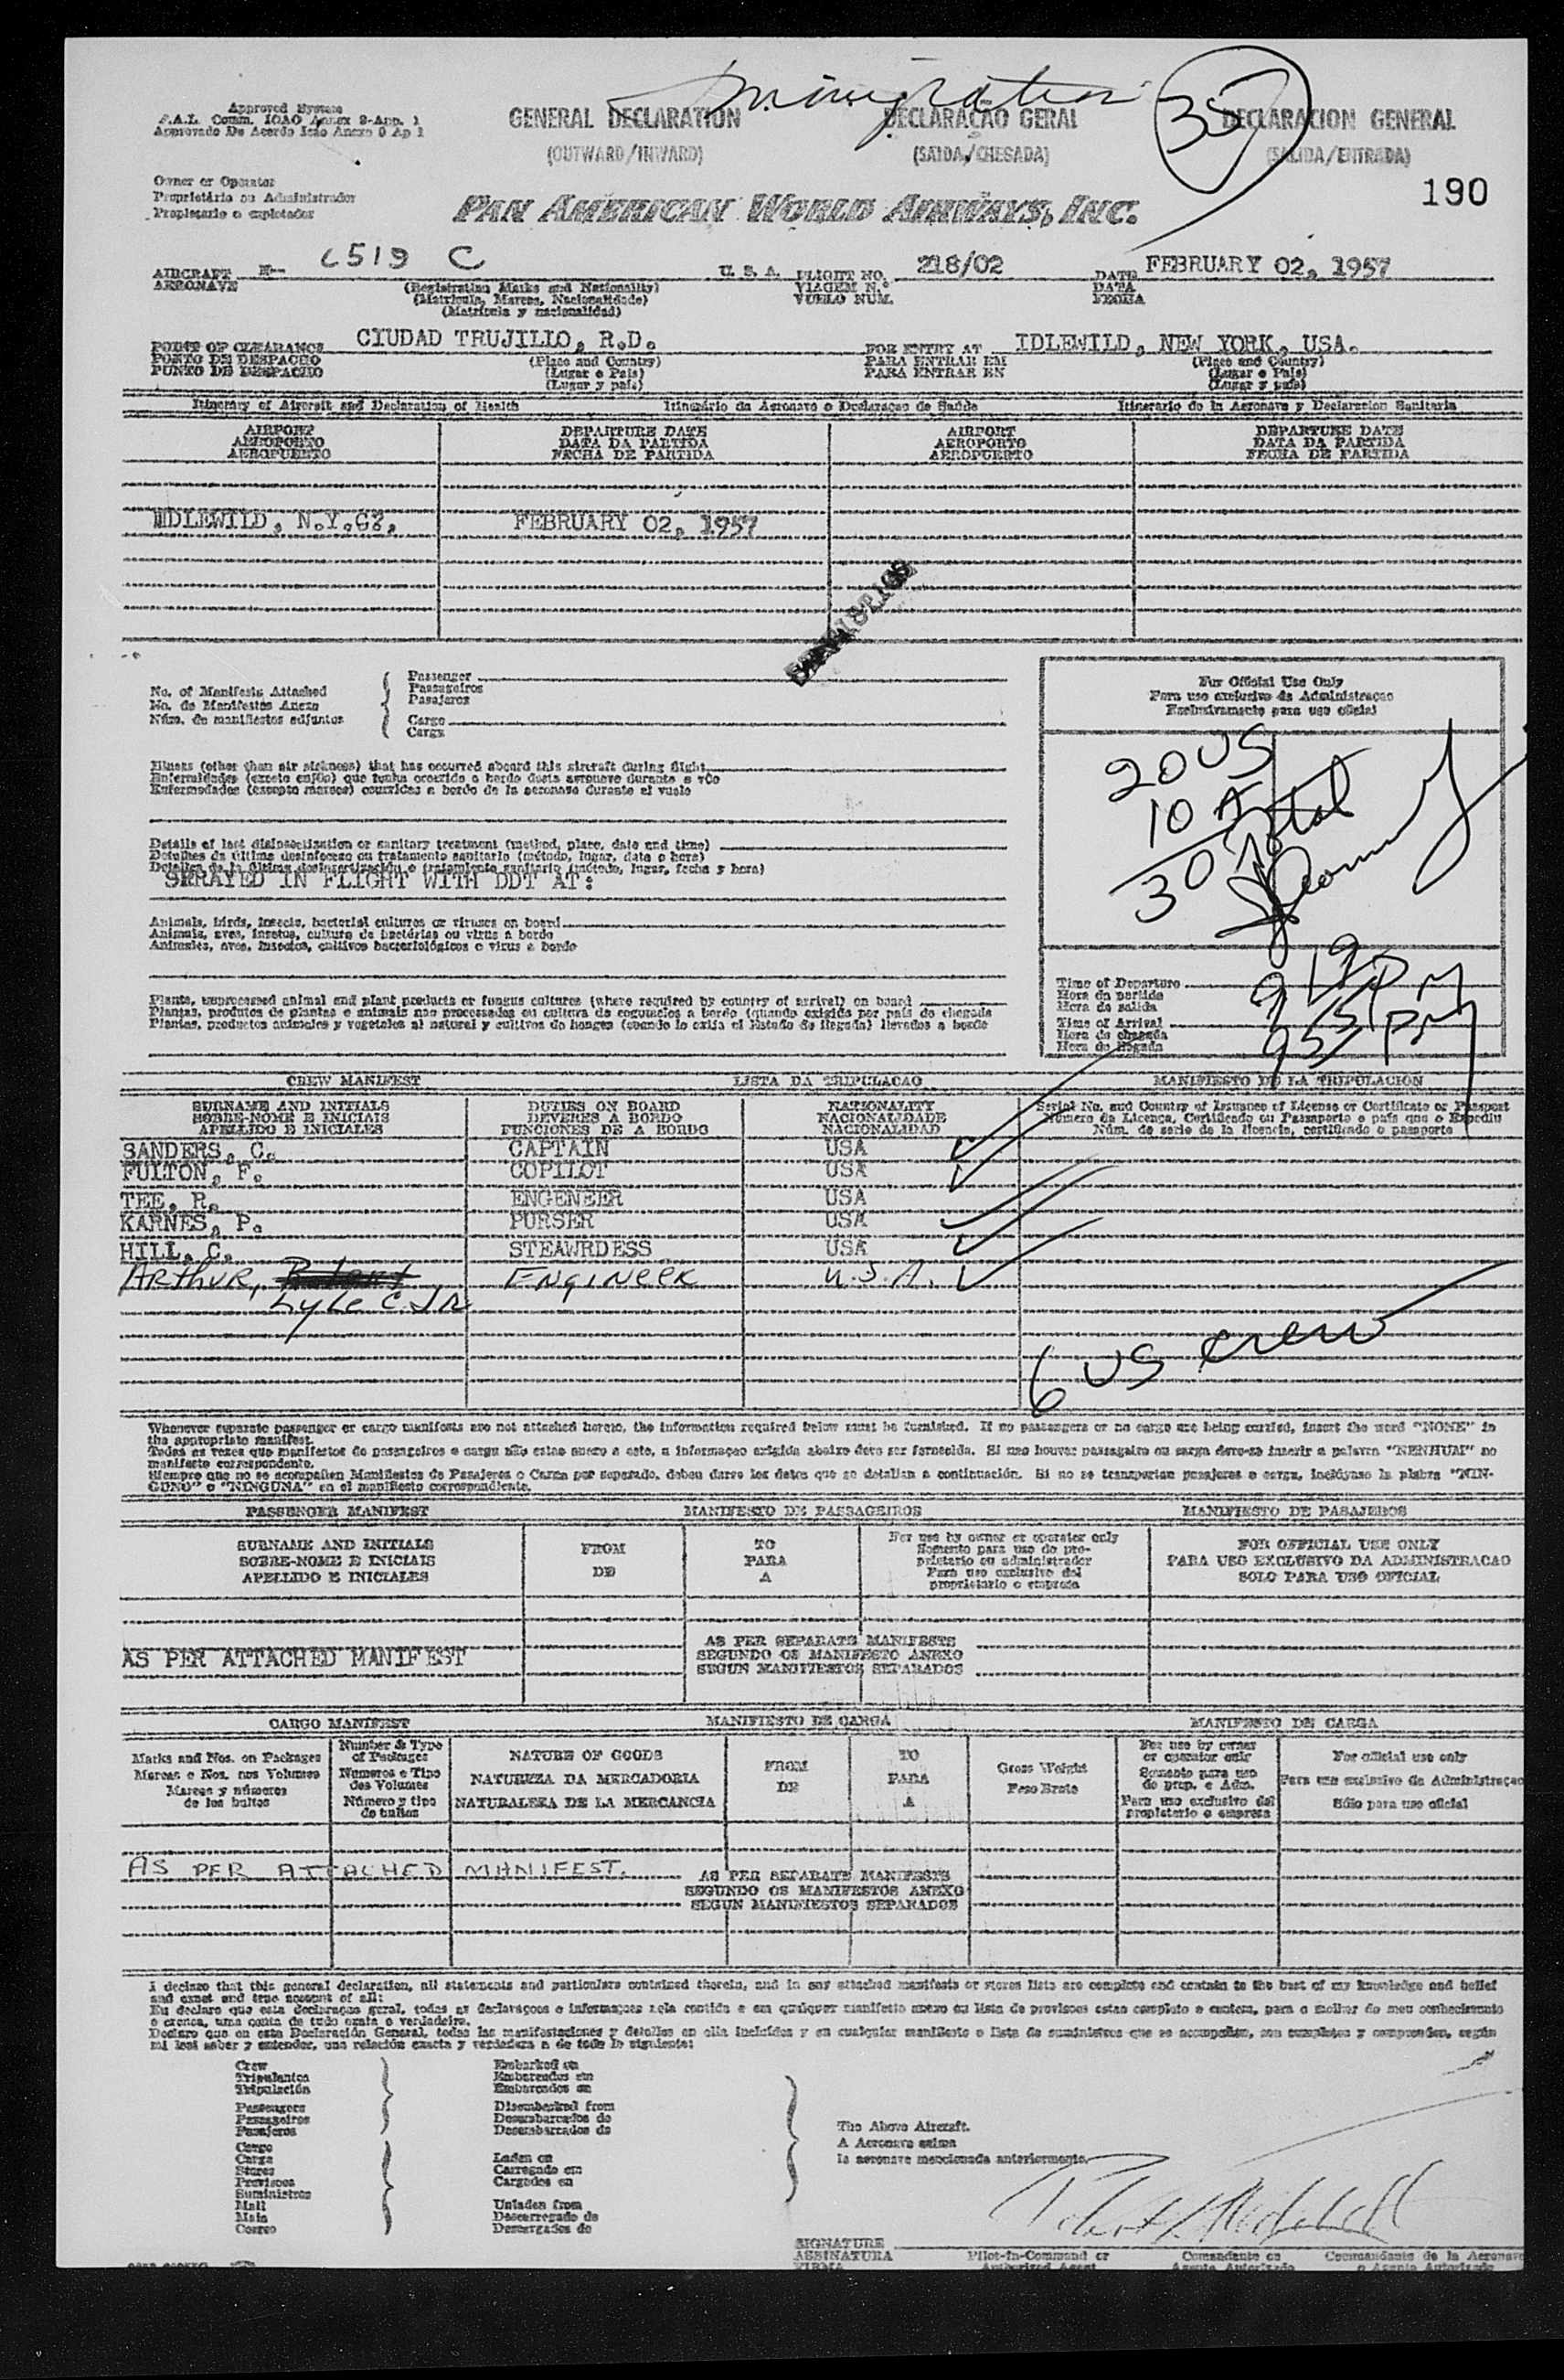 Immigration
35
Approved System
F.A.L. Comm. ICAO Annex 9-App. 1
Approvado De Acordo Icao Anexo 9 Ap 1
GENERAL DECLARATION DECLARAÇÃO GERAL DECLARACION GENERAL
(OUTWARD/INWARD) (SAIDA/CHEGADA) (SALIDA/ENTRADA)
Owner or Operator
Proprietário ou Administrador
Propietario o explotador
PAN AMERICAN WORLD AIRWAYS, INC.
190
AIRCRAFT N-- 6519 C U. S. A. FLIGHT NO. 218/02 DATE FEBRUARY 02, 1957
AERONAVE (Registration Marks and Nationality) VIAGEM N.º DATA
(Matricula, Marcas, Nacionalidade) VUELO NUM. FECHA
(Matrícula y nacionalidad)
POINT OF CLEARANCE CIUDAD TRUJILLO, R.D. FOR ENTRY AT IDLEWILD, NEW YORK, USA.
PONTO DE DESPACHO (Place and Country) PARA ENTRAR EM (Place and Country)
PUNTO DE DESPACHO (Lugar e Pais) PARA ENTRAR EN (Lugar e Pais)
(Lugar y país) (Lugar y país)
Itinerary of Aircraft and Declaration of Health Itinerário da Aeronave e Declaraçao de Saúde Itinerario de la Aeronave y Declaracion Sanitaria
AIRPORT DEPARTURE DATE AIRPORT DEPARTURE DATE
AEROPORTO DATA DA PARTIDA AEROPORTO DATA DA PARTIDA
AEROPUERTO FECHA DE PARTIDA AEROPUERTO FECHA DE PARTIDA
IDLEWILD, N.Y.C., FEBRUARY 02, 1957
STATISTICS
No. of Manifests Attached
No. de Manifestos Anexo
Núm. de manifiestos adjuntos
Passenger
Passageiros
Pasajeros
Cargo
Carga
For Official Use Only
Para uso exclusivo da Administraçao
Exclusivamente para uso oficial
20 US
10 A
30 Total
Illness (other than air sickness) that has occurred aboard this aircraft during flight
Enfermidades (exceto enjôo) que tenha ocorrido a bordo desta aeronave durante o vôo
Enfermedades (excepto mareos) ocurridas a bordo de la aeronave durante el vuelo
Details of last disinsectization or sanitary treatment (method, place, date and time)
Detalhes da última desinfeccao ou tratamento sanitario (método, lugar, data e hora)
Detalles de la última desinsectización o tratamiento sanitario (método, lugar, fecha y hora)
SPRAYED IN FLIGHT WITH DDT AT:
Animals, birds, insects, bacterial cultures or viruses on board
Animais, aves, insetos, cultura de bactérias ou virus a bordo
Animales, aves, insectos, cultivos bacteriológicos o virus a bordo
Plants, unprocessed animal and plant products or fungus cultures (where required by country of arrival) on board
Plantas, produtos de plantas e animais nao processados ou cultura de cogumelos a bordo (quando exigida por pais de chegada
Plantas, productos animales y vegetales al natural y cultivos de hongos (cuando lo exija el Estado de llegada) llevados a bordo
Time of Departure 9 19 PM
Hora da partida
Hora de salida
Time of Arrival 955 PM
Hora de chegada
Hora de llegada
CREW MANIFEST LISTA DA TRIPULACAO MANIFIESTO DE LA TRIPULACION
SURNAME AND INITIALS DUTIES ON BOARD NATIONALITY Serial No. and Country of Issuance of License or Certificate or Passport
SOBRE-NOME E INICIAIS DEVERES A BORDO NACIONALIDADE Número da Licença, Certificado ou Passaporte e país que o Expediu
APELLIDO E INICIALES FUNCIONES DE A BORDO NACIONALIDAD Núm. de serie de la licencia, certificado o pasaporte
SANDERS, C. CAPTAIN USA
FULTON, F. COPILOT USA
TEE, R. ENGENEER USA
KARNES, P. PURSER USA
HILL, C. STEAWRDESS USA
ARTHUR, Robert ENGINEER U.S.A.
Lyle C. JR
6 US crew
Whenever separate passenger or cargo manifests are not attached hereto, the information required below must be furnished. If no passengers or no cargo are being carried, insert the word "NONE" in
the appropriate manifest.
Todas as vezes que manifestos de passageiros e carga não estao anexo a este, a informaçao exigida abaixo deve ser fornecida. Si nao houver passageiro ou carga deve-se inserir a palavra "NENHUM" no
manifesto correspondente.
Siempre que no se acompañen Manifiestos de Pasajeros o Carga por separado, deben darse los datos que se detallan a continuación. Si no se transportan pasajeros o carga, inclúyase la plabra "NIN-
GUNO" o "NINGUNA" en el manifiesto correspondiente.
PASSENGER MANIFEST MANIFESTO DE PASSAGEIROS MANIFIESTO DE PASAJEROS
SURNAME AND INITIALS FROM TO For use by owner or operator only FOR OFFICIAL USE ONLY
SOBRE-NOME E INICIAIS DE PARA Somento para uso do pro- PARA USO EXCLUSIVO DA ADMINISTRACAO
APELLIDO E INICIALES A prietario ou administrador SOLO PARA USO OFICIAL
Para uso exclusivo del
propietario o empresa
AS PER ATTACHED MANIFEST
AS PER SEPARATE MANIFESTS
SEGUNDO OS MANIFESTO ANEXO
SEGUN MANIFIESTOS SEPARADOS
CARGO MANIFEST MANIFIESTO DE CARGA MANIFESTO DE CARGA
Marks and Nos. on Packages
Marcas e Nos. nos Volumes
Marcas y números
de los bultos
Number & Type
of Packages
Numeros e Tipo
des Volumes
Número y tipo
de bultos
NATURE OF GOODS
NATUREZA DA MERCADORIA
NATURALEZA DE LA MERCANCIA
FROM
DE
TO
PARA
A
Gross Weight
Peso Bruto
For use by owner
or operator only
Somento para uso
do prop. e Adm.
Para uso exclusivo del
propietario o empresa
For official use only
Para uso exclusivo da Administraçao
Sólo para uso oficial
AS PER ATTACHED MANIFEST.
AS PER SEPARATE MANIFESTS
SEGUNDO OS MANIFESTOS ANEXO
SEGUN MANIFIESTOS SEPARADOS
I declare that this general declaration, all statements and particulars contained therein, and in any attached manifests or stores lists are complete and contain to the best of my knowledge and belief
and exact and true account of all:
Eu declaro que esta declaraçao geral, todas as declaraçoes e informaçoes nela contida e em qualquer manifesto anexo ou lista de provisoes estao completo e contem, para o melhor do meu conhecimento
e crenca, uma conta de tudo exata e verdadeira.
Declaro que en esta Declaración General, todas las manifestaciones y detalles en ella incluidos y en cualquier manifiesto o lista de suministros que se acompañen, son completos y comprenden, según
mi leal saber y entender, una relación exacta y verdadera a de todo lo siguiente:
Crew
Tripulantes
Tripulación
Passengers
Passageiros
Pasajeros
Cargo
Carga
Stores
Provisoes
Suministros
Mail
Mala
Correo
Embarked on
Embarcados em
Embarcados en
Disembarked from
Desembarcados de
Desembarcados de
Laden on
Carregado em
Cargados en
Unladen from
Descarregado de
Descargados de
The Above Aircraft.
A Aeronave acima
la aeronave mencionada anteriormente.
SIGNATURE
ASSINATURA Pilot-in-Command or Comandante ou Commandante de la Aeronave
FIRMA Authorized Agent Agente Autorizado o Agente Autorizado